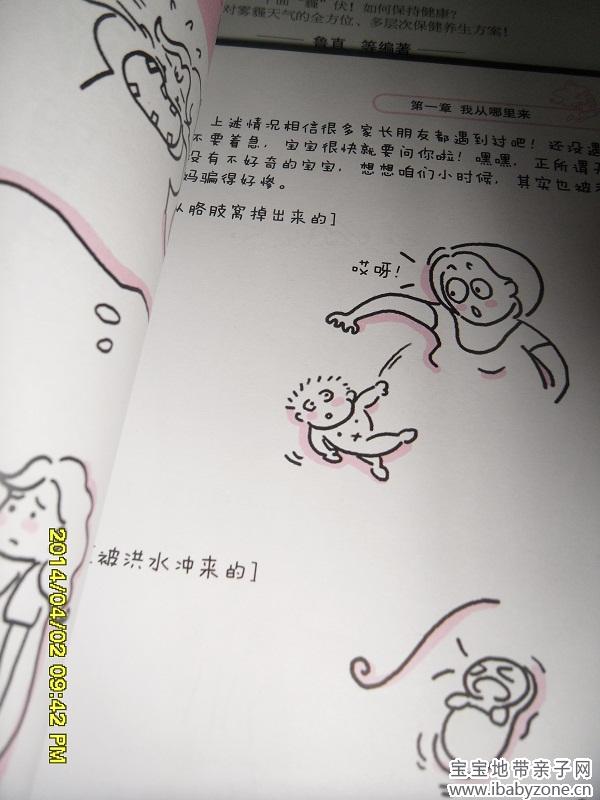 十面“霾”伏！如何保持健康？
对雾霾天气的全方位、多层次保健养生方案！
鲁直 等编著
第一章 我从哪里来
上述情况相信很多家长朋友都遇到过吧！还没遇
不要着急，宝宝很快就要问你啦！嘿嘿，正所谓
没有不好奇的宝宝，想想咱们小时候，其实也被
妈骗得好惨。
从胳肢窝掉出来的]
哎呀！
[被洪水冲来的]
2014/04/02 09:42 PM
宝宝地带亲子网
www.ibabyzone.cn